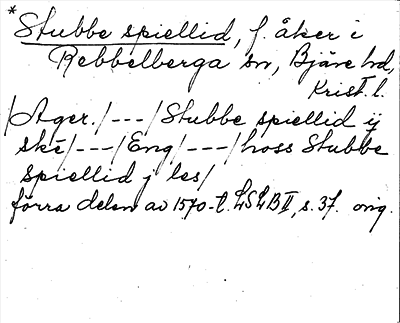 * Stubbe spiellid, f. åker i
Rebbelberga sn, Bjäre hd,
Krist. l.
/Ager./---/Stubbe spiellid ij
ske/---/Eng/---/hoss Stubbe
spiellid j les/
förra delen av 1570-t. LSLB II, s. 37. orig.